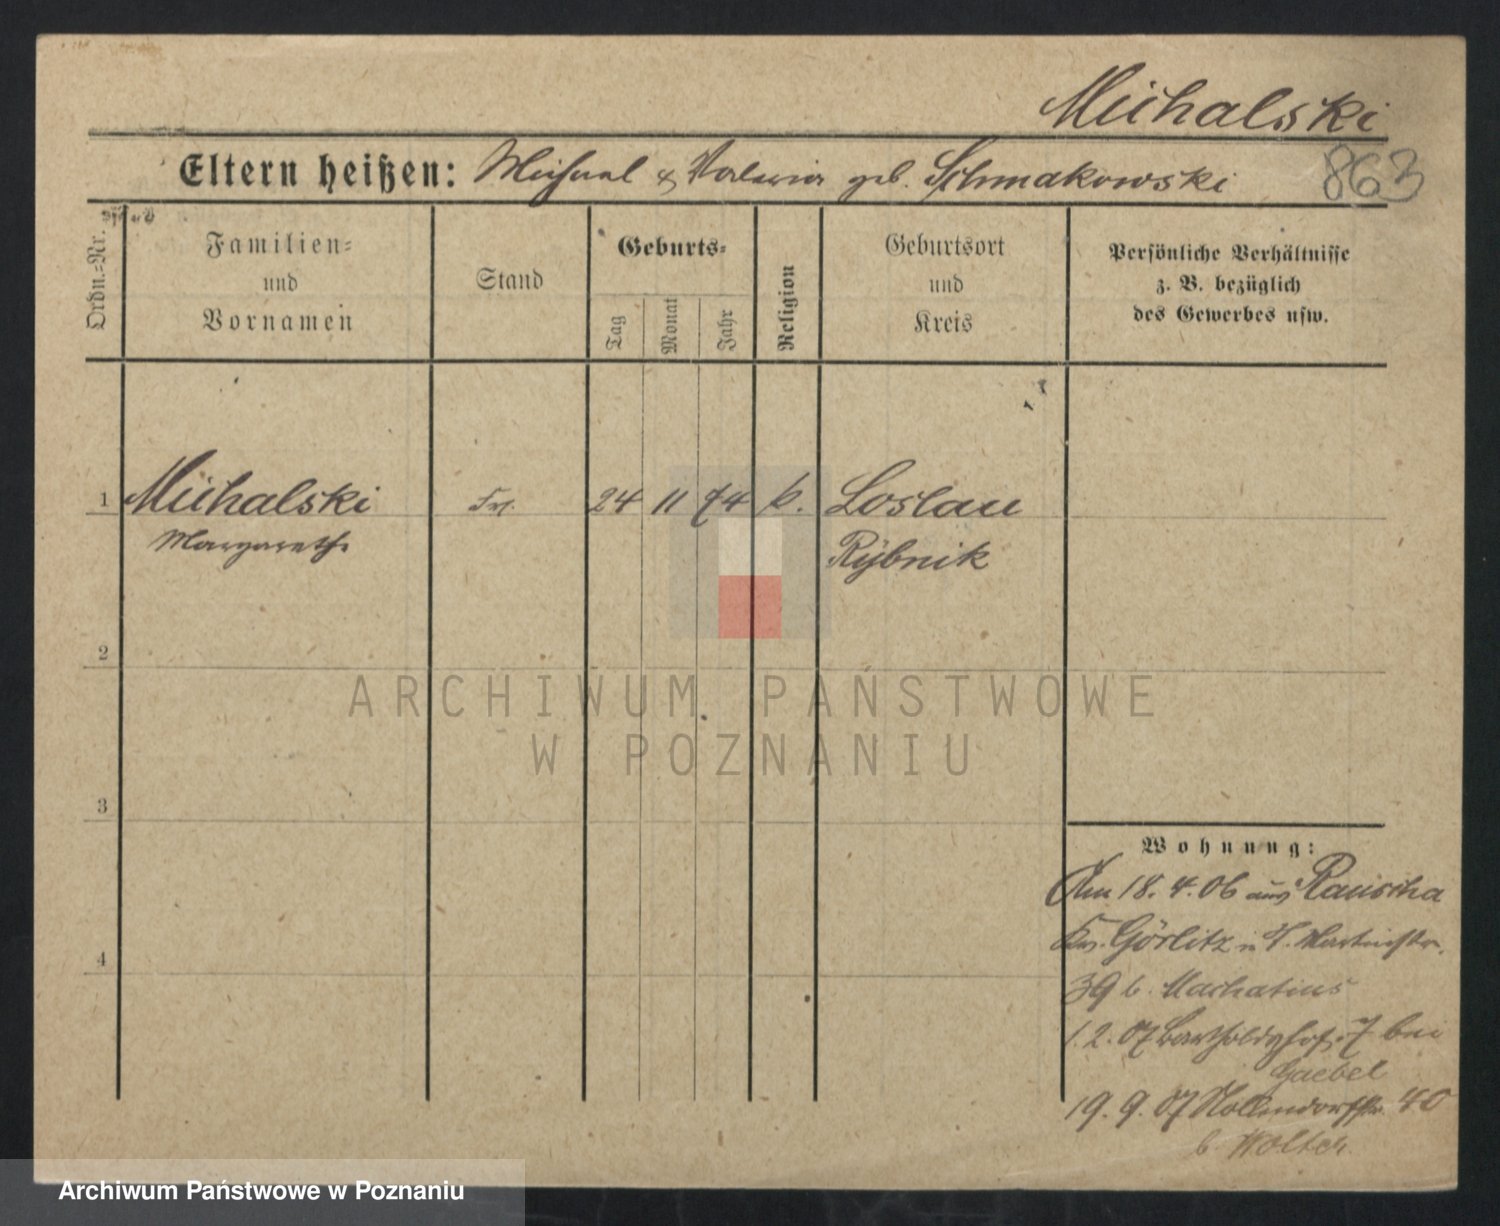 Michalski
Eltern heißen: Michael & Valeria geb. Schmakowski 863
Ordn.=Nr.
Familien=
und
Vornamen
Stand
Geburts=
Tag
Monat
Jahr
Religion
Geburtsort
und
Kreis
Persönliche Verhältnisse
z. B. bezüglich
des Gewerbes usw.
1 Michalski Frl. 24 11 74 k. Loslau
Margarethe Rybnik
2
ARCHIWUM PAŃSTWOWE
W POZNANIU
3
Wohnung:
Am 18.4.06 aus Rauscha
Krs. Görlitz n. St. Martinstr.
4
39 b.
1.2.07 7 bei
Gaebel
19.9.07 Nollendorfstr. 40
b. Wolter
Archiwum Państwowe w Poznaniu